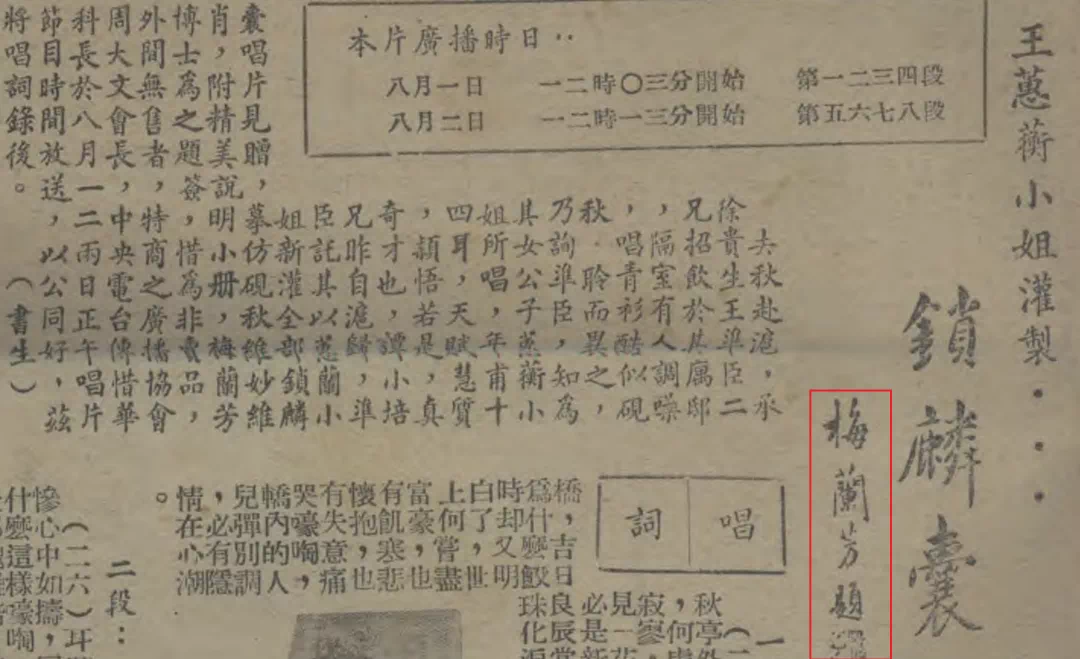 王蕙蘅小姐灌製・・・
鎖麟囊
梅蘭芳題
本片廣播時日‥
八月一日 一二時〇三分開始 第一二三四段
八月二日 一二時一三分開始 第五六七八段
去秋赴滬，承
徐貴生王準臣二
兄招飲於其厲邸
，隔室有人調嗓
，唱青衫酷似硯
秋．聆而異之，
乃詢準臣，知為
其女公子蕙蘅小
姐所唱，年甫十
四耳，天賦慧質
，穎悟若是，真
奇才也，譚小培
兄昨自滬歸，準
臣託其以蕙蘭小
姐新灌全部鎖麟
囊唱片見贈，摹仿硯秋維妙維
肖，附精美說明小册，梅蘭芳
博士為之題簽，惜為非賣品，
外間無售者，特商之廣播協會
周大文會長，中央電台傳惜華
科長於八月一二兩日正午唱片
節目時間放送，以公同好，茲
將唱詞錄後。（書生）
唱詞
一
（二
秋亭外
，何處
寂寥
見一花
必是新
橋，吉日良辰當
爲什麼鮫珠化淚
時却又明
白了，世
上何嘗盡
富豪，也
有飢寒悲
懷抱，也
有失意痛
哭豪啕，
轎內的人
兒彈別調
，必有隱
情在心潮。
二段：
（二六）耳
慘心中如擣，
什麼這樣嚎啕